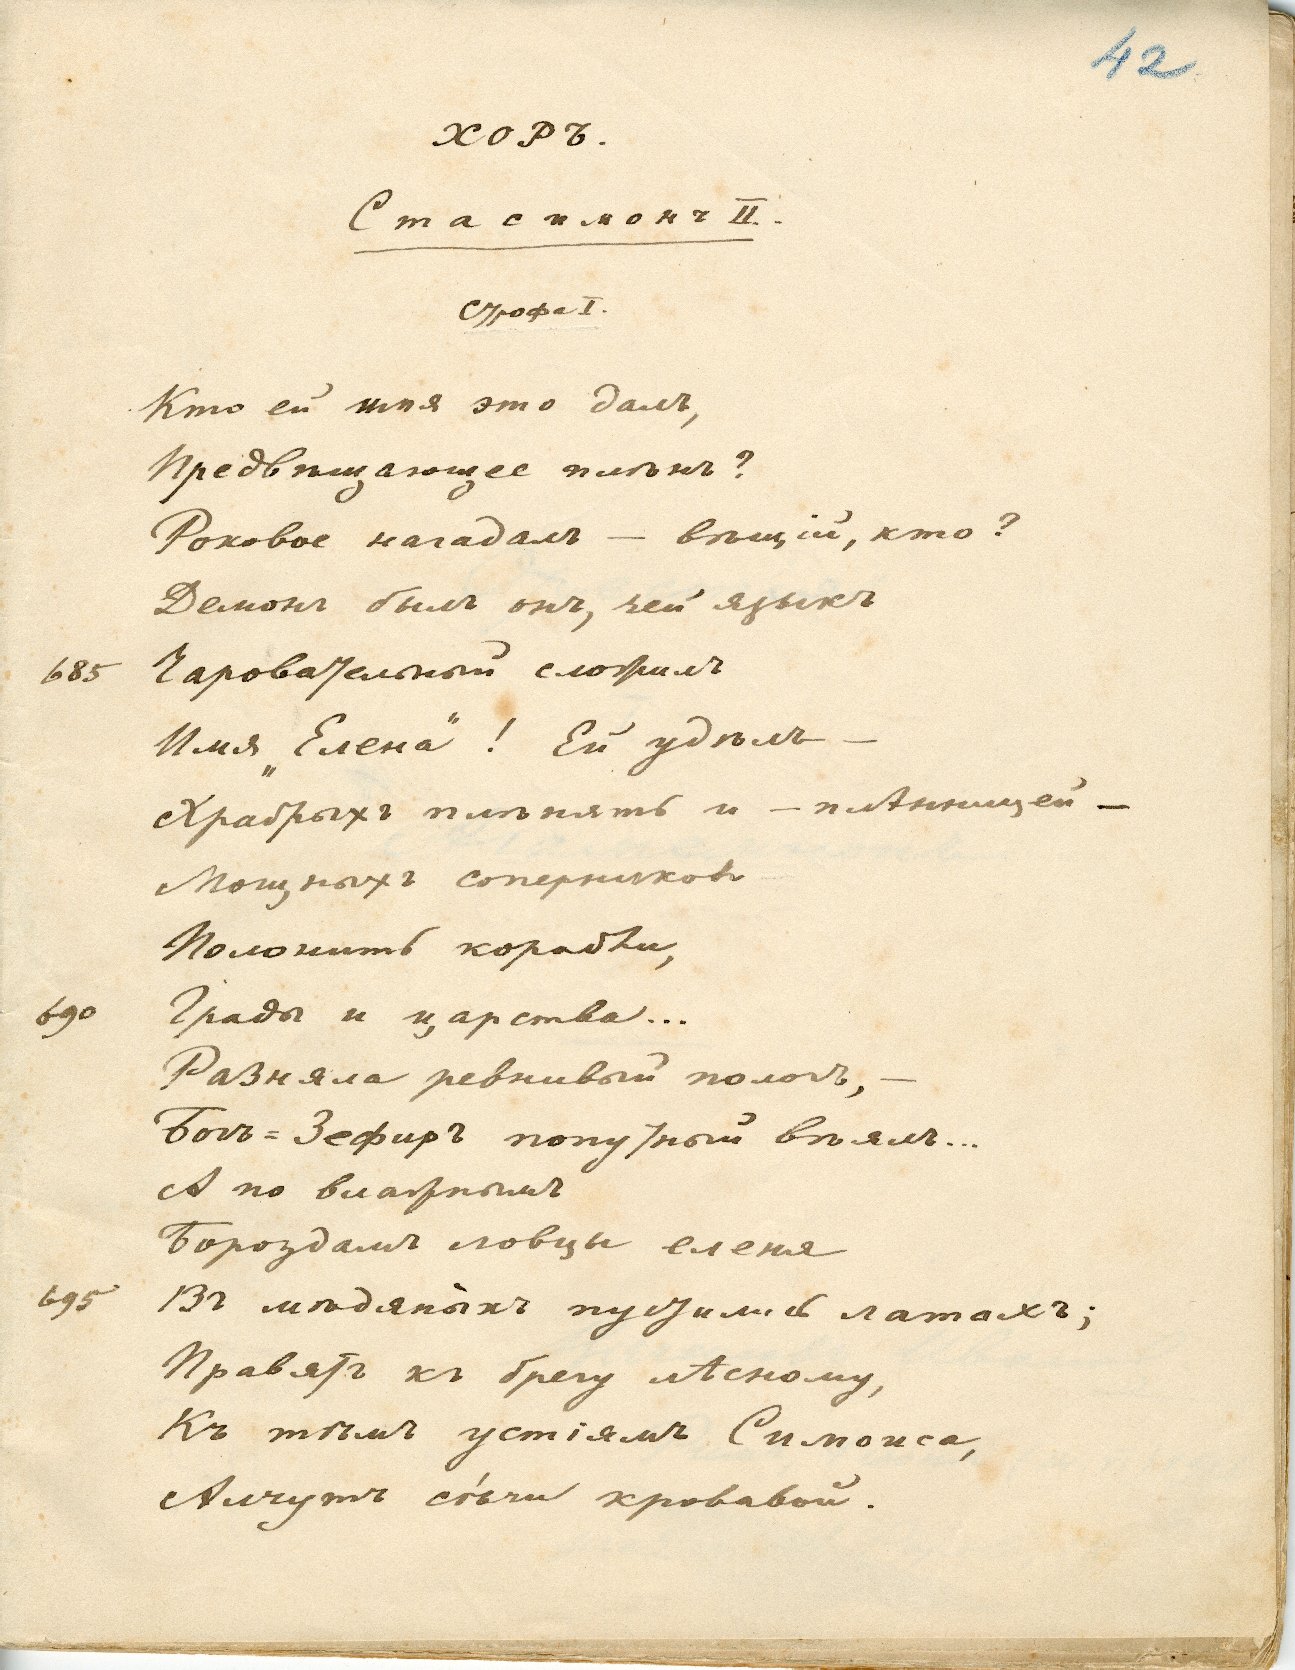 42
ХОРЪ.
Стасимонъ II.
Строфа I.
Кто ей имя это далъ,
Предвѣщающее плѣнъ?
Роковое нагадалъ — вѣщій, кто?
Демонъ былъ онъ, чей языкъ
685 Чаровательный сложилъ
Имя „Елена“! Ей удѣлъ —
Храбрыхъ плѣнять и — плѣнницей —
Мощныхъ соперниковъ
Полонить корабли,
690 Грады и царства...
Разняла ревнивый пологъ, —
Богъ=Зефиръ попутный вѣялъ...
А по влажнымъ
Бороздамъ ловцы еленя
695 Въ мѣдяныхъ пустились латахъ;
Правятъ къ брегу лѣсному,
Къ тѣмъ устіямъ Симоиса,
Алчутъ сѣчи кровавой.